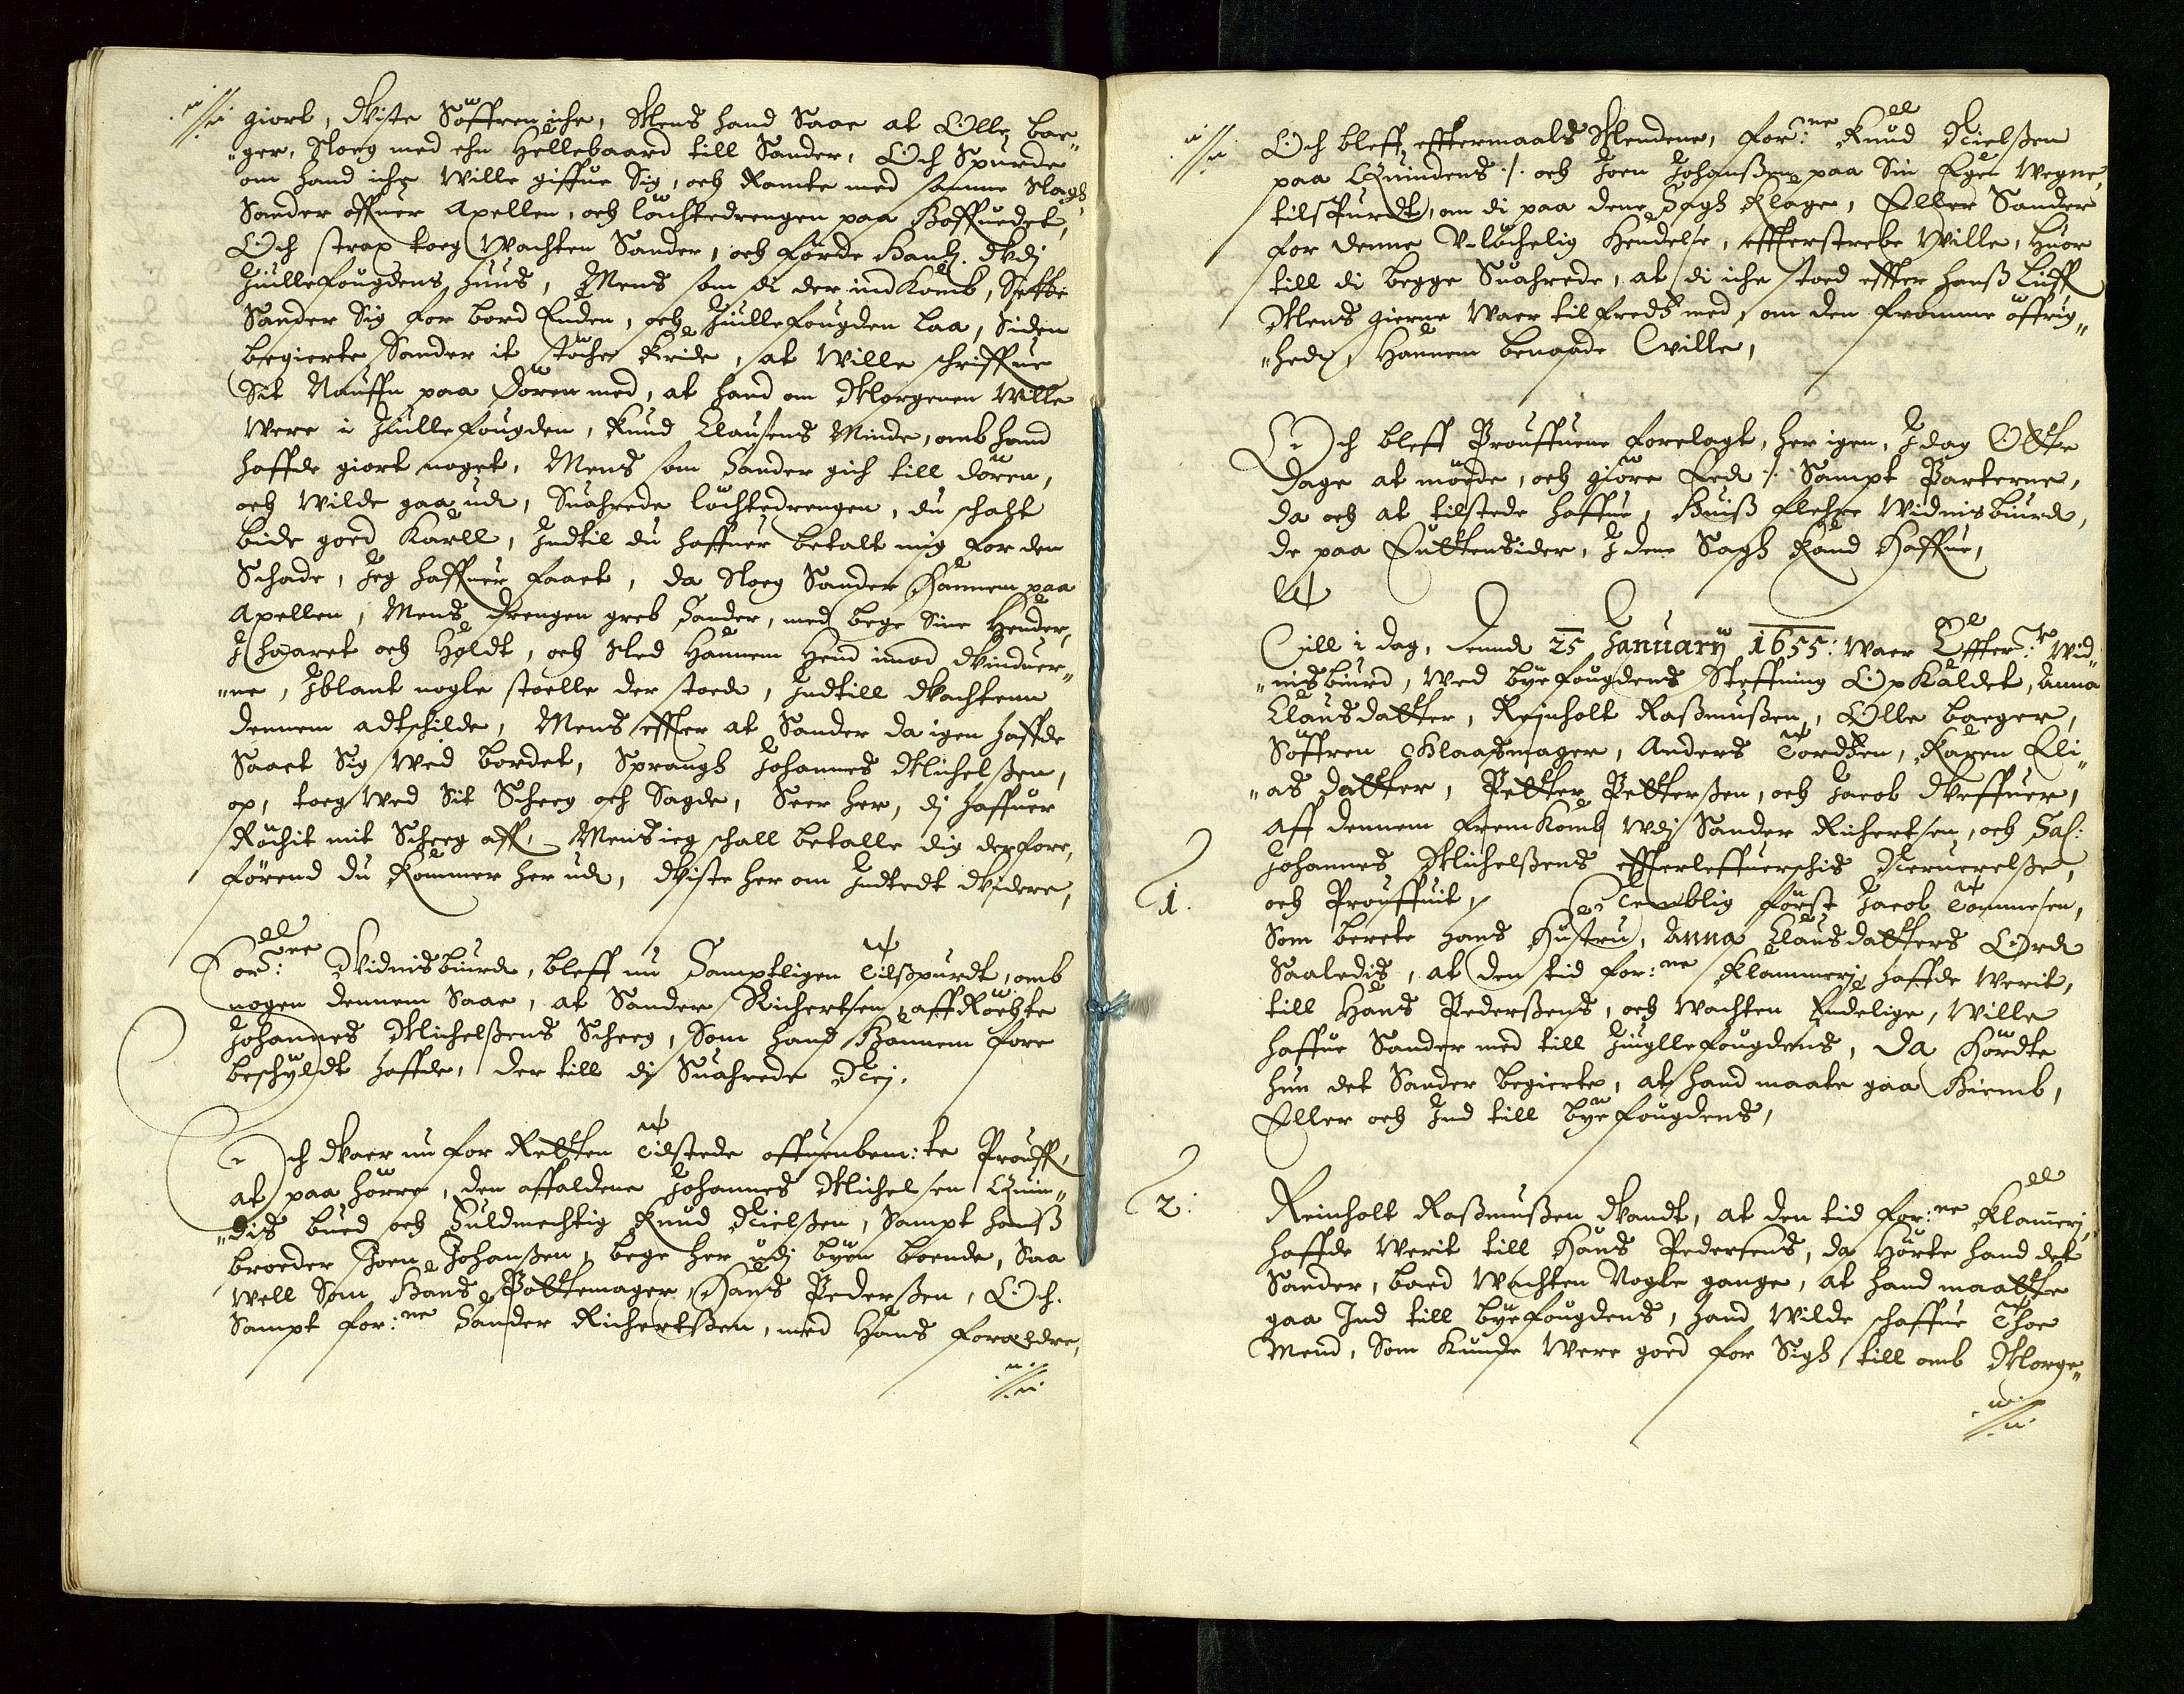 giort, Wiste Söffren iche, Mens hand Saae at Olle bae„
„ger, Sloeg med ehn Hellebaard till Sander, Och Spurde
om hand iche Wille giffue Sig, och Ramte med samme Slagh,
Sander offuer Apellen, och löchtedrengen paa Hoffuedet,
Och strax toeg Wachten Sander, och förde Hans Udj
Huus, Mens som di der ind Komb, Sette
Sander Sig for bord Enden, och laa, Siden
begierte Sander it stöche Kride, at Wille schriffue
Sit Nauffn paa Dören med, at hand om Morgenen Wille
Were i Knud Clausens Minde, omb hand
haffde giort noget, Mens som Sander gich till dören,
och Wilde gaa ud, Suahrede löchtedrengen, du schalt
bide goed Karll, Indtil du haffuer betalt mig for den
Schade, Jeg haffuer faaet, da Sloeg Sander Hannem paa
Apellen, Mens drengen greb Sander, med bege Sine Hender,
J haaret och Holdt, och Sled Hannem Hend imod Winduer„
„ne, Iblant nogle stoelle der stoede, Indtill Wachtenn
dennem adtschilde, Mens effter at Sander da igen haffde
Saaet Sig Wed bordet, Sprangh Johannes Michelßen,
op, toeg Wed Sit Scheeg och Sagde, Seer her, di haffuer
Röchit mit Scheeg aff, Mens ieg schall betalle dig derfore,
förend du Kommer her ud, Wiste her om Indtedt Widere,
For:ne Widnisbiurd, bleff nu Samptligen Tilspurdt, omb
nogen dennem Saae, at Sander Richertsen, aff Röchte
Johannes Michelßens Scheeg, Som hand Hannem fore
beschyldt haffde, der till di Suahrede Nej,
Och Waer nu for Retten Tilstede offuenbem:te Prouff,
at paa hörre, den affaldene Johannes Michelsen Quin„
„dis bued och Fuldmechtig Knud Nielßen, Sampt hanß
broeder Joen Johanßen, bege her udj byen boende, Saa
Well Som Hans Pottemager, Hans Pederßen, Och
Sampt for:ne Sander Richertßen, med Hans Foreldre,
Och bleff efftermaals Mendene, for:ne Knud Nielßen
paa Quindens ./. och Joen Johanßen paa Sin Egen Wegne,
tilspurdt, om di paa dene Sagh Klage, Eller Sander
for denne Vlöchelig Hendelse, effterstrebe Wille, huor
till di begge Suahrede, at di iche stoed effter hanß Liiff
Mens gierne Waer tilfreds med, om den fromme öffrig„
„hed, Hannem benaade Wille,
Och bleff Prouffuene forelagt, her igen, J dag Otte
Dage at möede, och giöre Eed ./. Sampt Parterne,
da och at tilstede haffue, Huiß flehre Widnisbiurd,
de paa Sidер, J dene Sagh Kand Haffue,
Till i dag, dend 25 January 1655: Waer Effter:te Wid„
„nisbiurd, Wed byefougdens Steffning OpKaldet, Anna
Clausdatter, Reinholt Raßmußen, Olle baeger,
Söffren Anders Tordßen, Karen Eli„
„as datter, Petter Petterßen, och Jacob Weffuer,
Aff dennem fremKomb Udj Sander Richertsen, och Sal:
Johannes Michelßens effterleffuerschis Neruerelße,
1. och Prouffuit, Nemblig först Jacob Tommesen,
Som berete hans Hustru, Anna Clausdatters Ord
Saaledis, at den tid for:ne Klammerj, haffde Werit,
till Hans Pederßens, och Wachten Endelige, Wille
haffue Sander med till da Hördte
hun det Sander begierte, at hand maate gaa Hiemb,
Eller och Ind till byefougdens,
2: Reinholt Raßmußen Wandt, at den tid for:ne Klamerj,
haffde Werit till Hans Pedersens, da Hörte hand det
Sander, baed Wachten Nogle gange, at hand maatte
gaa Ind till byefougdens, hand Wilde schaffue Thoe
Mend, Som Kunde Were goed for Sigh, till omb Morge„